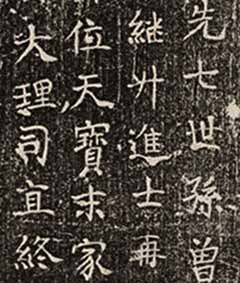 先七世孫曾
継升進士
位天寶末家
大理司直終